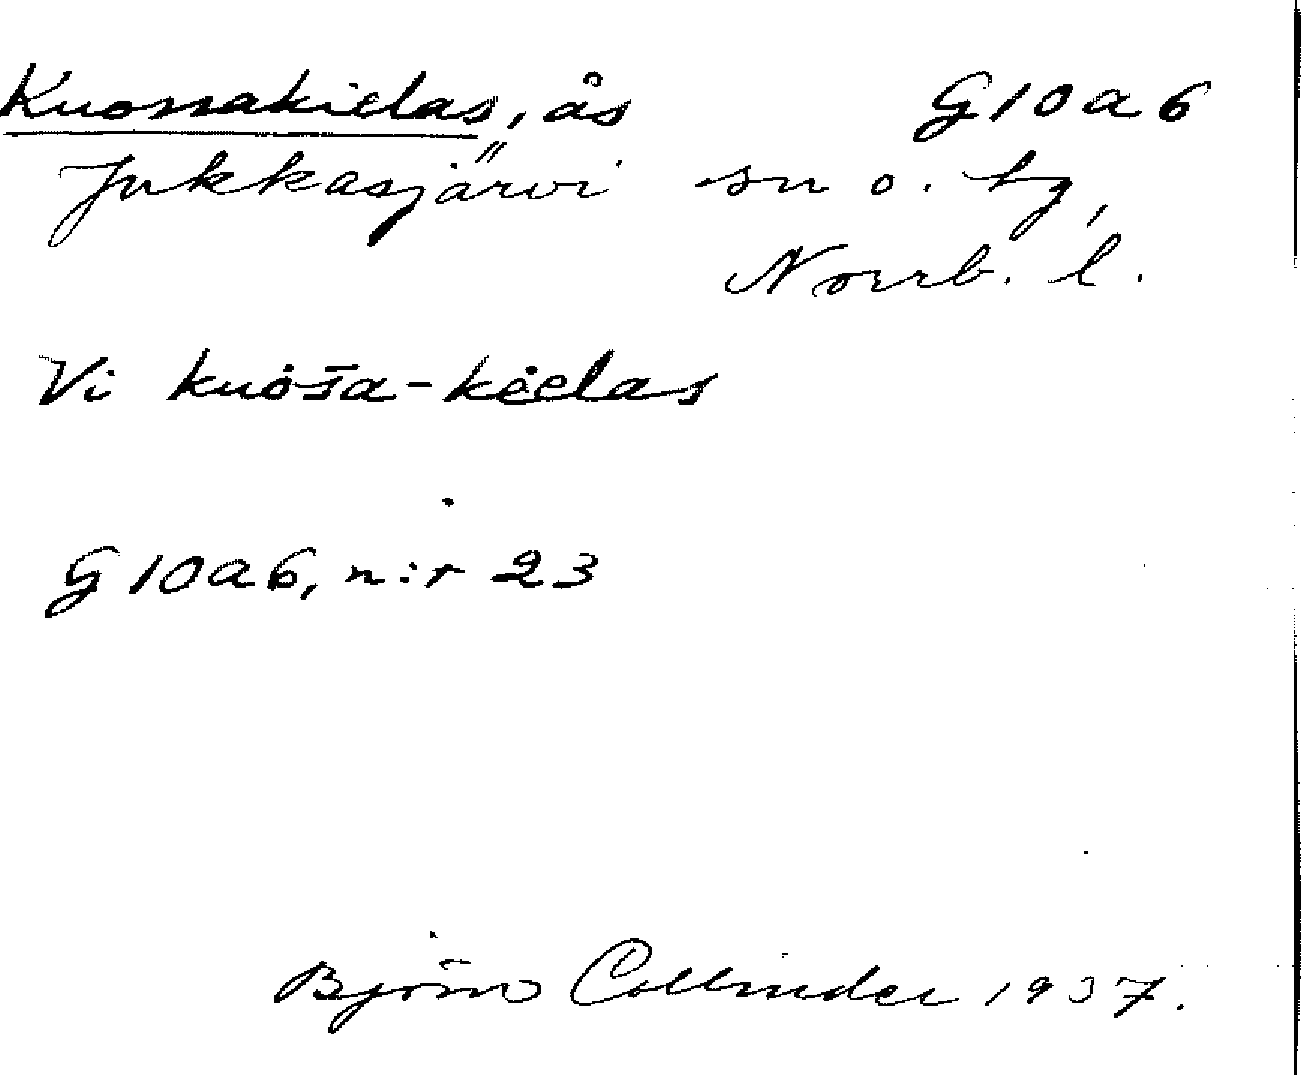 Kuossakielas, ås G10a6
Jukkasjärvi sn o. tg,
Norrb. l.
Vi kuȯs̄a-kėelas
G10a6, n:r 23
Björn Collinder 1937.